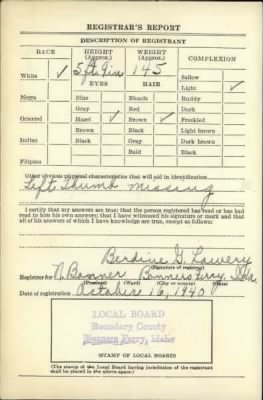 REGISTRAR'S REPORT
DESCRIPTION OF REGISTRANT
RACE HEIGHT (Approx.) WEIGHT (Approx.) COMPLEXION
White ✓ 5 ft. 9 ins 145 Sallow
EYES HAIR Light ✓
Negro Blue Blonde Ruddy
Gray Red Dark
Oriental Hazel ✓ Brown ✓ Freckled
Brown Black Light brown
Indian Black Gray Dark brown
Bald Black
Filipino
Other obvious physical characteristics that will aid in identification
Left Thumb missing
I certify that my answers are true; that the person registered has read or has had
read to him his own answers; that I have witnessed his signature or mark and that
all of his answers of which I have knowledge are true, except as follows:
Berdine G. Lowery
(Signature of registrar)
Registrar for N. Bonner Bonners Ferry, Ida.
(Precinct) (Ward) (City or county) (State)
Date of registration October 16, 1940
LOCAL BOARD
Boundary County
Bonners Ferry, Idaho
(STAMP OF LOCAL BOARD)
(The stamp of the Local Board having jurisdiction of the registrant
shall be placed in the above space.)